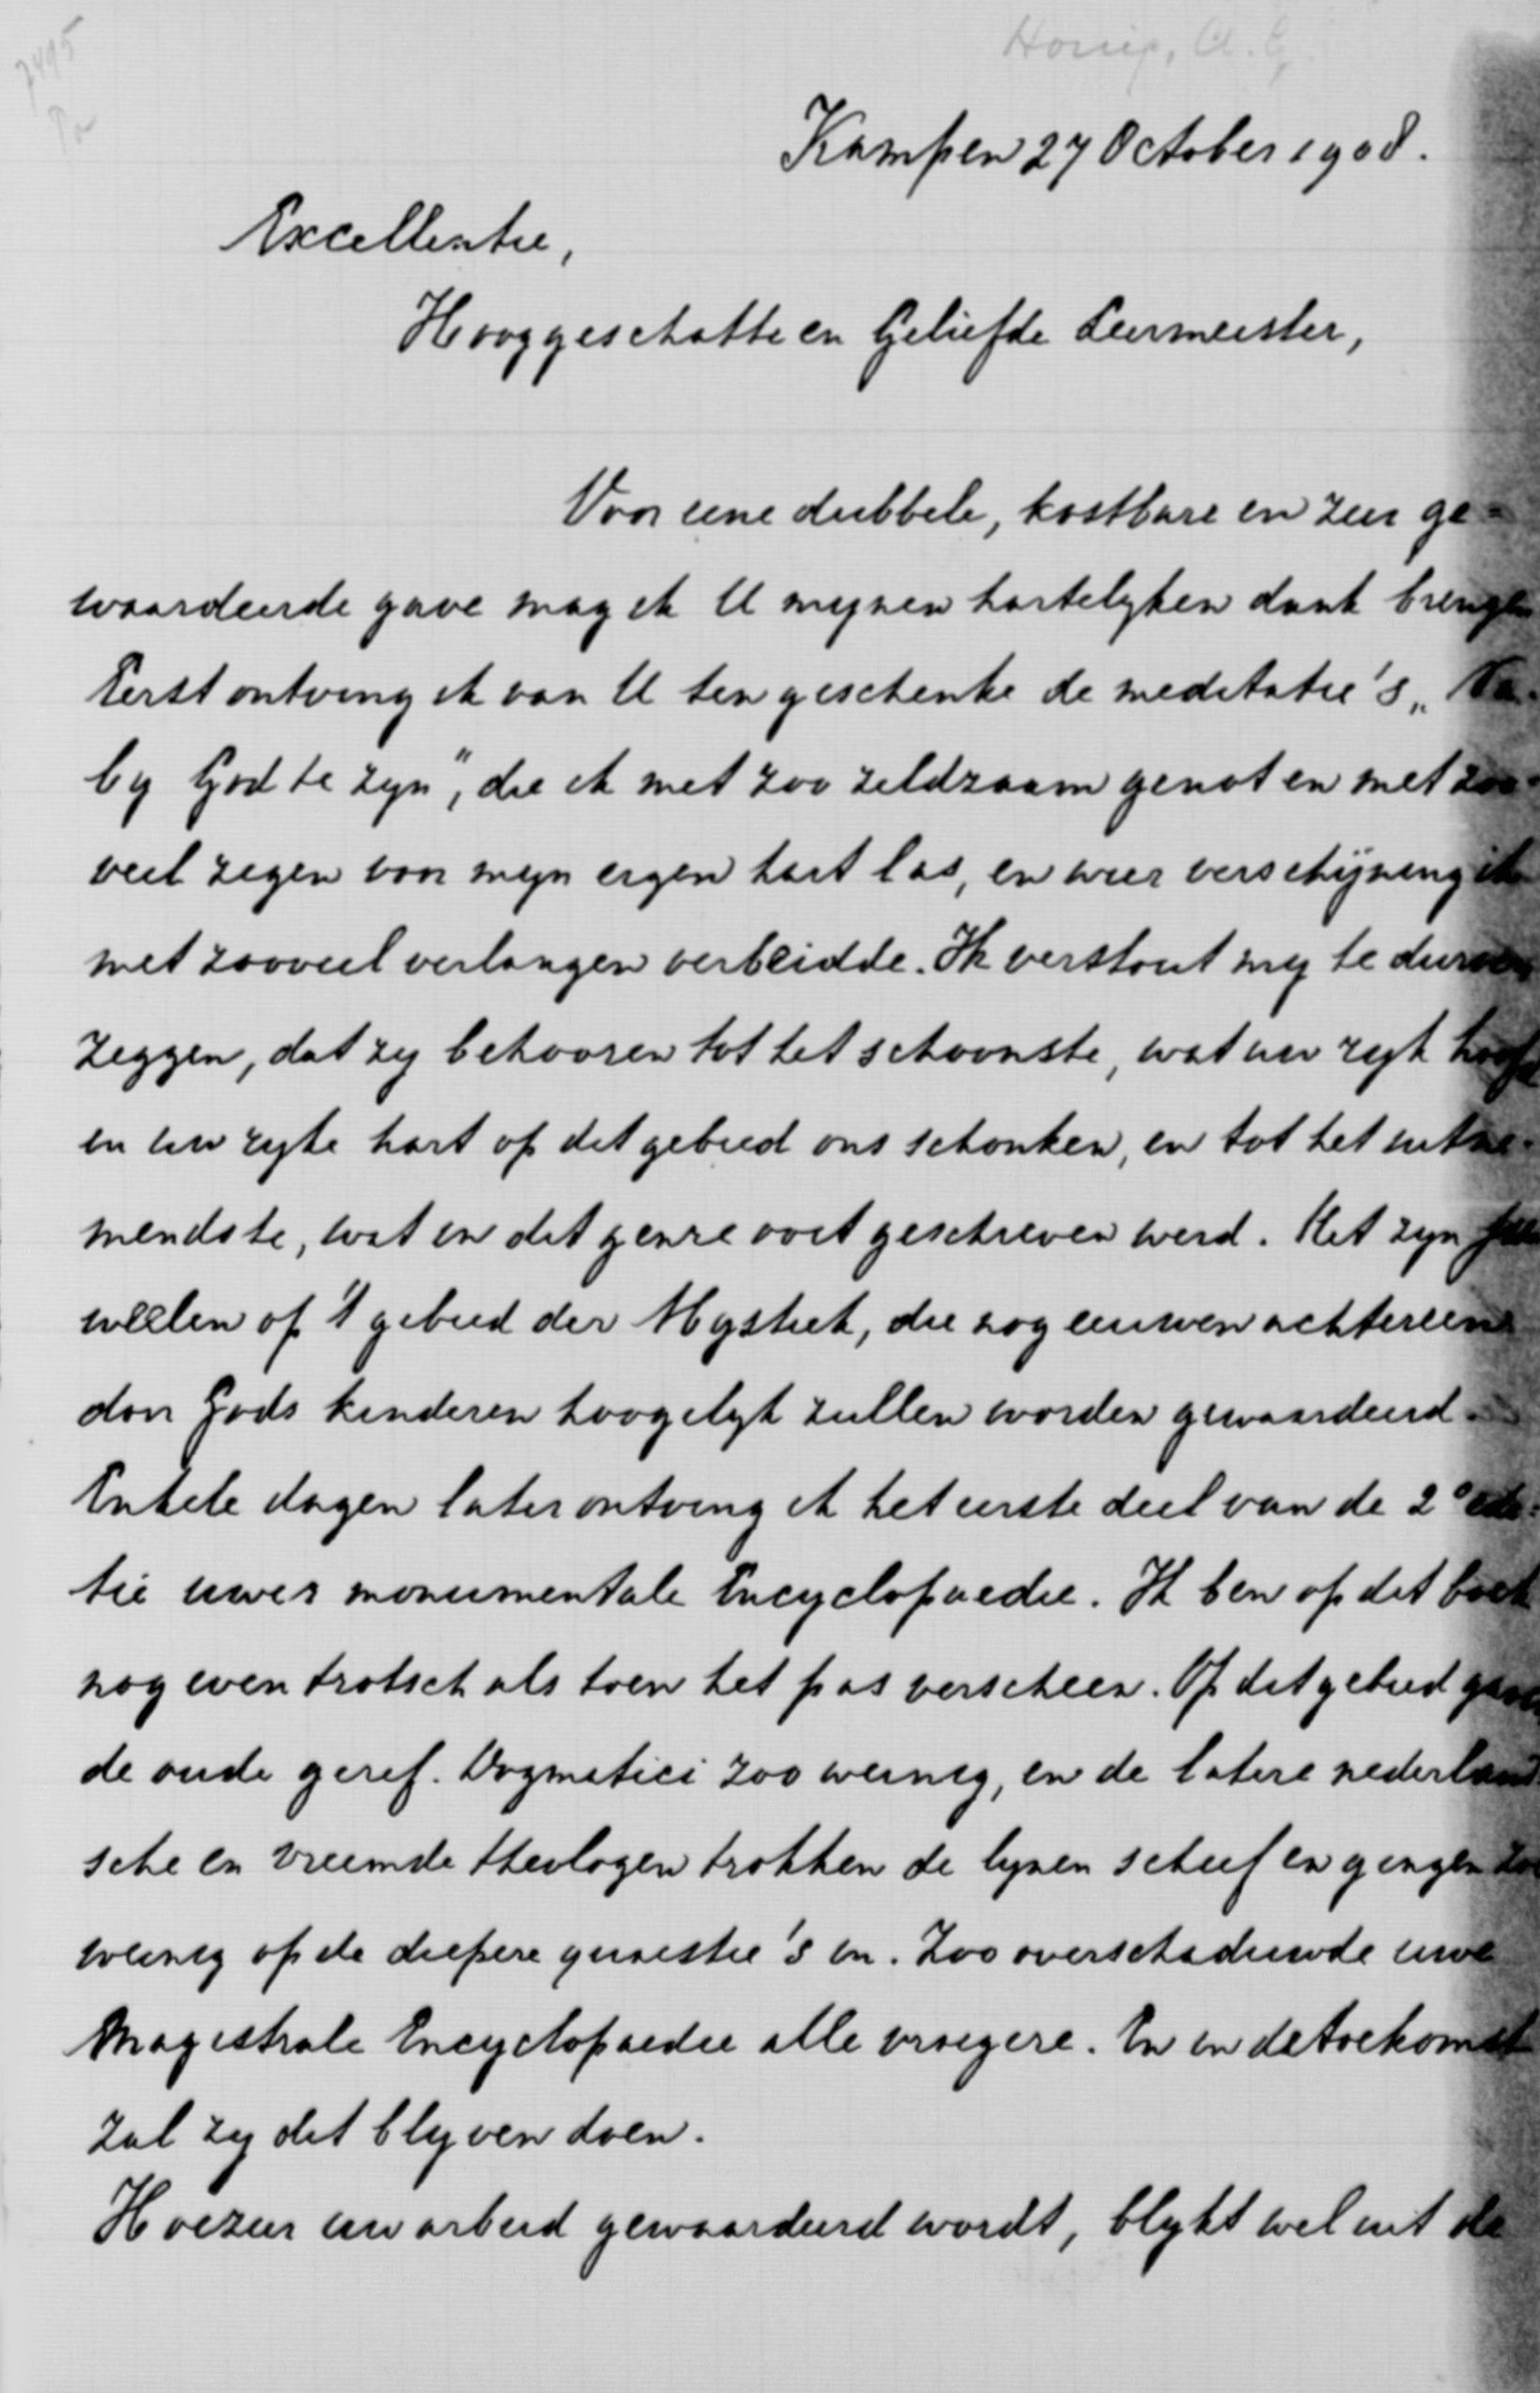 7495
Honig, A. G.
Kampen 27 October 1908.
Excellentie,
Hooggeschatte en Geliefde Leermeester,
Voor eene dubbele, kostbare en zeer ge-
waardeerde gave mag ik U mynen hartelyken dank brengen
Eerst ontving ik van U ten geschenke de meditatie's „Na
by God te zyn", die ik met zoo zeldzaam genot en met zoo-
veel zegen voor myn eigen hart las, en wier verschijning ik
met zooveel verlangen verbeidde. Ik verstout my te durven
zeggen, dat zy behooren tot het schoonste, wat uw ryk hoofd
en uw ryke hart op dit gebied ons schonken, en tot het uitne-
mendste, wat in dit genre ooit geschreven werd. Het zyn ju
weelen op 't gebied der Mystiek, die nog eeuwen achtereen
door Gods kinderen hoogelyk zullen worden gewaardeerd.
Enkele dagen later ontving ik het eerste deel van de 2e edi-
tie uwer monumentale Encyclopaedie. Ik ben op dit boek
nog even trotsch als toen het pas verscheen. Op dit gebied gaven
de oude geref. Dogmatici zoo weinig, en de latere nederland
sche en vreemde theologen trokken de lynen scheef en gingen zoo
weinig op de diepere quaestie's in. Zoo overschaduwde uwe
Magistrale Encyclopaedie alle vroegere. En in de toekomst
zal zy dit blyven doen.
Hoezeer uw arbeid gewaardeerd wordt, blykt wel uit de